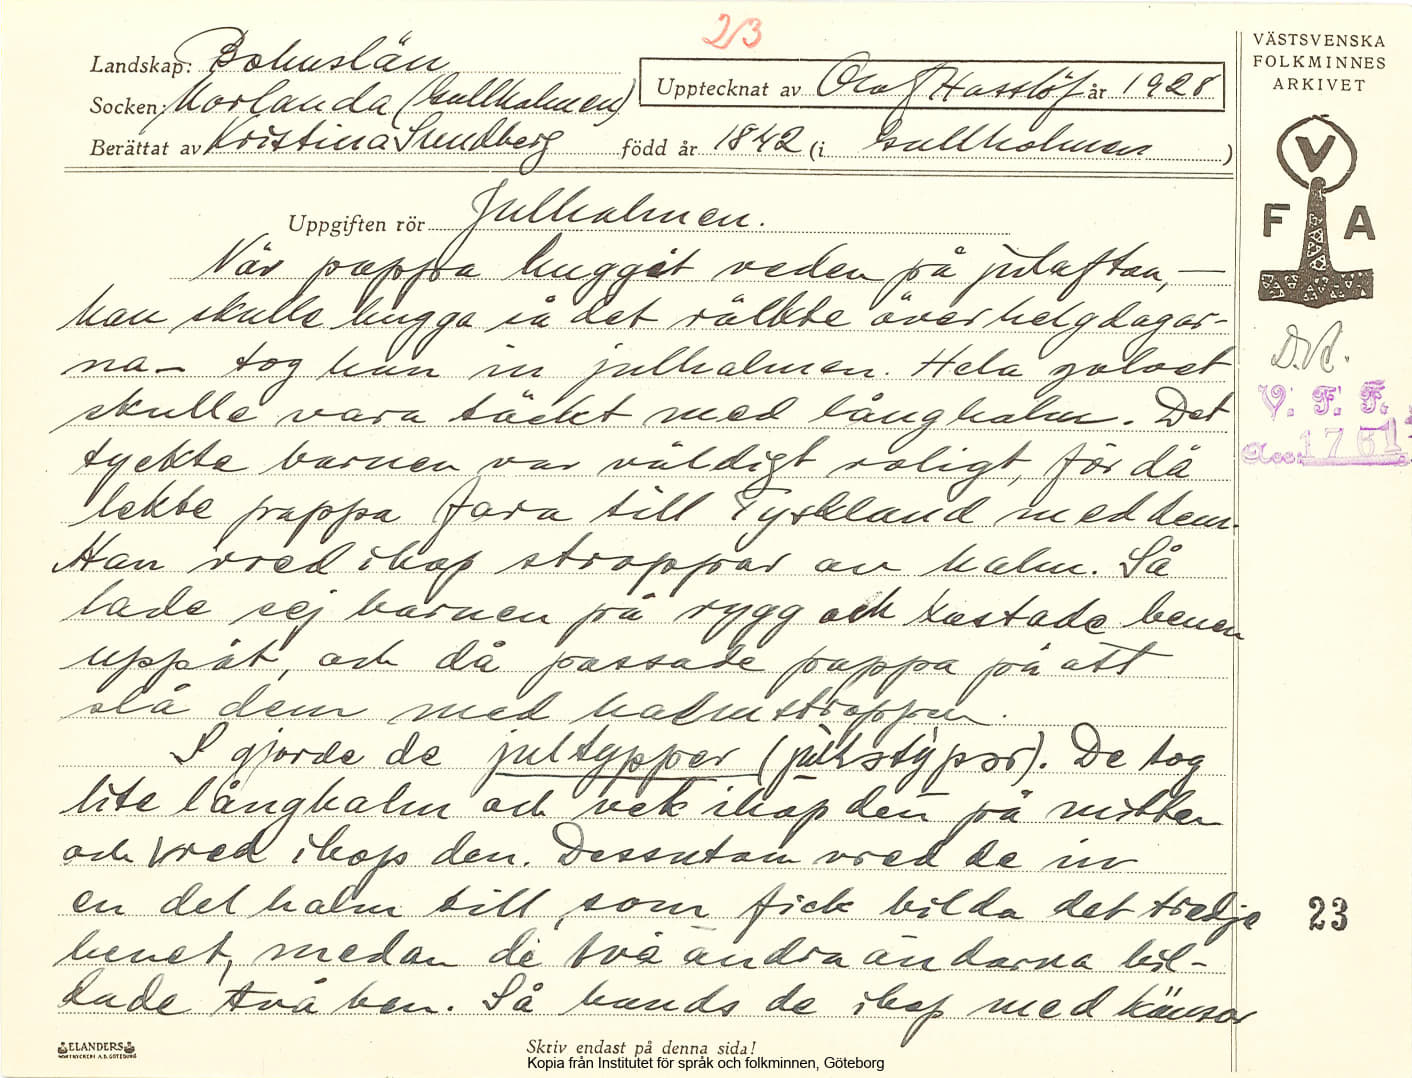 23
Landskap: Bohuslän
Socken: Morlanda (Gullholmen)
Upptecknat av Olof Hasslöf år 1928
Berättat av Kristina Sundberg född år 1842 (i Gullholmen)
VÄSTSVENSKA
FOLKMINNES
ARKIVET
V
F A
Uppgiften rör Julhalmen.
När pappa huggit veden på julaftan, —
han skulle hugga så det räkkte över helgdagar-
na — tog han in julhalmen. Hela golvet
skulle vara täckt med långhalm. Det
tyckte barnen var väldigt roligt, för då
lekte pappa fara till Tyskland med dem.
Han vred ihop stroppar av halm. Så
lade sej barnen på rygg och kastade benen
uppåt, och då passade pappa på att
slå dem med halmstroppen.
S gjorde de jultyppar
De tog
lite långhalm och vek ihop den på mitten
och vred ihop den. Dessutom vred de in
en del halm till, som fick bilda det tredje
benet, medan de två andra ändarna bil-
dade två ben. Så bands de ihop med känsor
V. F. F.
Acc. 1761
23
ELANDERS
BOKTRYCKERI A.B. GÖTEBORG
Skriv endast på denna sida!
Kopia från Institutet för språk och folkminnen, Göteborg